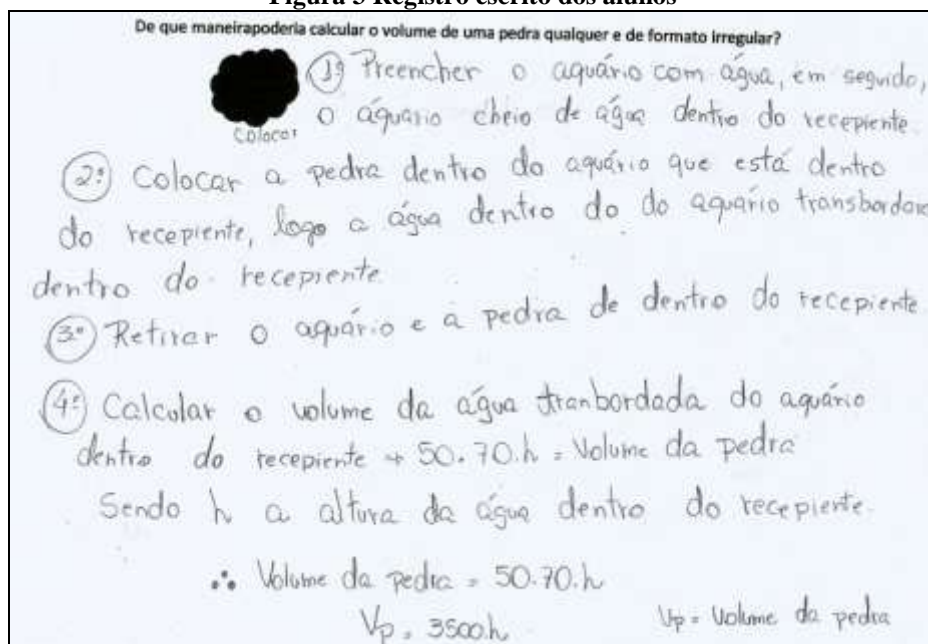 Figura 3 Registro escrito dos alunos
De que maneirapoderia calcular o volume de uma pedra qualquer e de formato irregular?
1º Preencher o aquário com água, em seguido,
colocar o áquario cheio de água dentro do recepiente.
2º Colocar a pedra dentro do aquário que está dentro
do recepiente, logo a água dentro do do aquário transbordará
dentro do recepiente.
3º Retirar o aquário e a pedra de dentro do recepiente.
4º Calcular o volume da água tranbordada do aquário
dentro do recepiente → 50.70.h = Volume da pedra
Sendo h a altura da água dentro do recepiente.
∴ Volume da pedra = 50.70.h
Vp = 3500h Vp = Volume da pedra